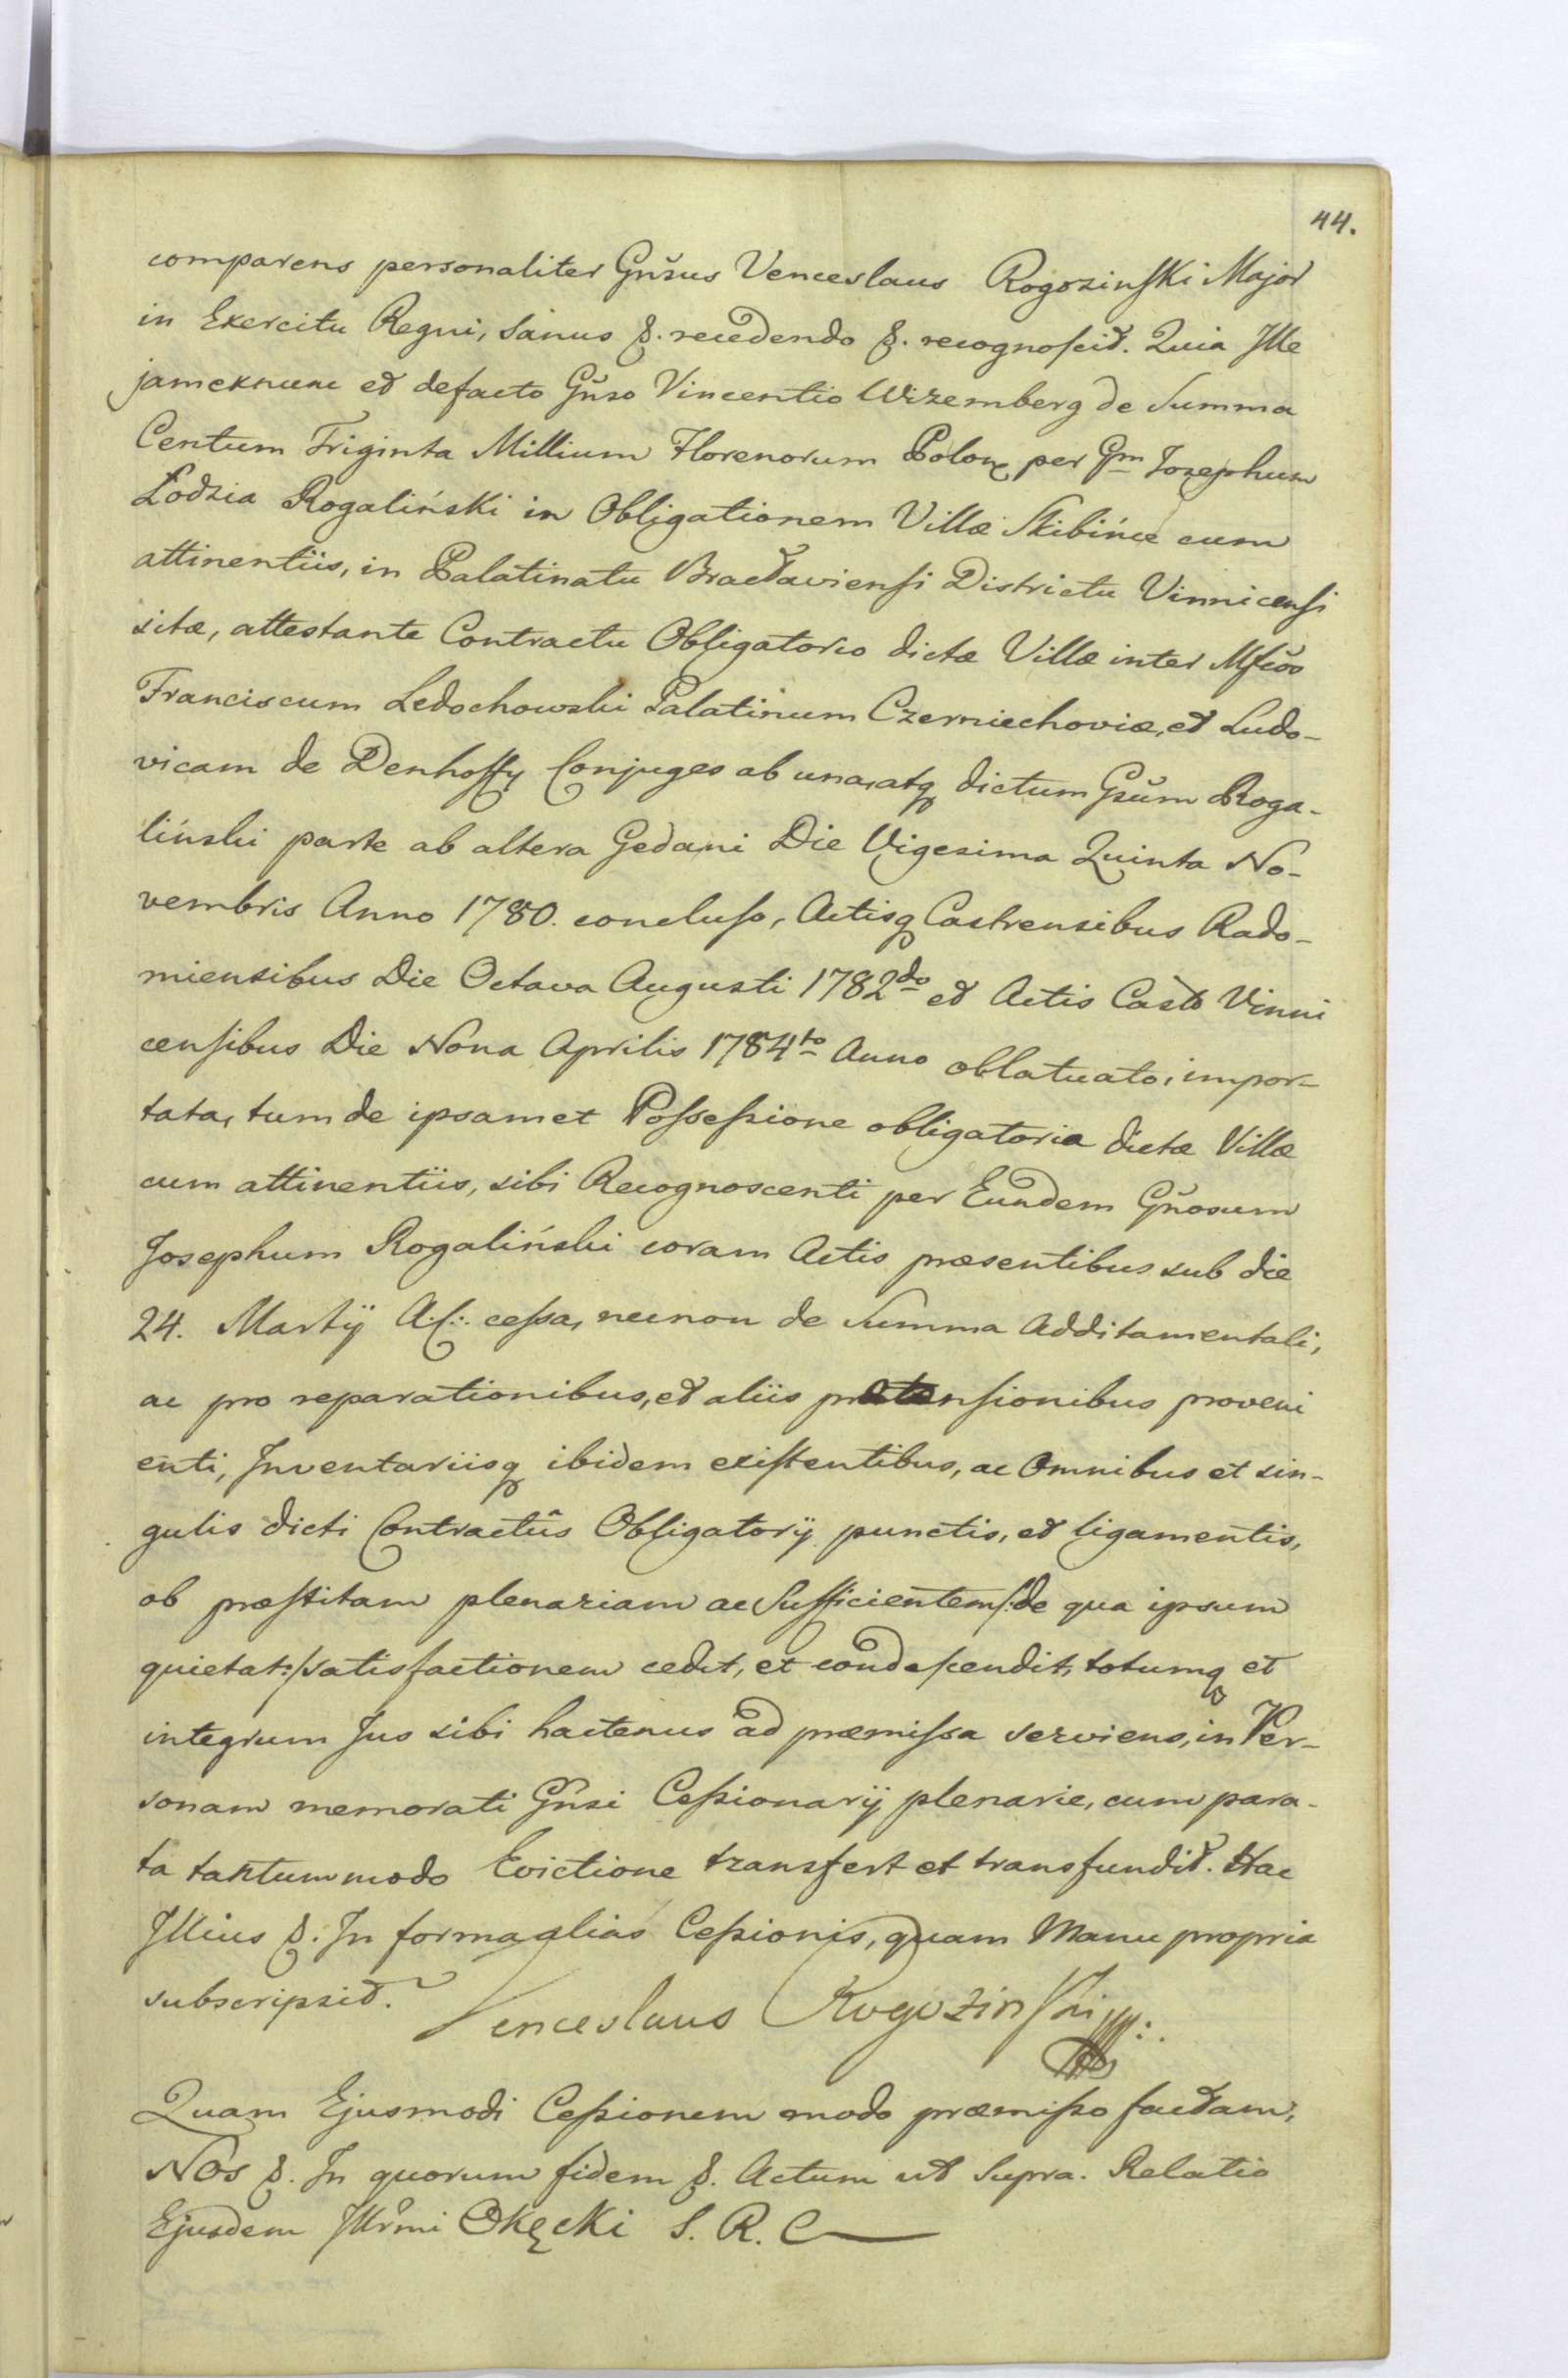 44.
comparens personaliter Gn̄sus Venceslaus Rogozinſki Major
in Exercitu Regni, Sanus &. recedendo &. recognoſcit. Quia Ille
jamexnunc et defacto Gn̄so Vincentio Wizemberg de Summa
Centum Triginta Millium Florenorum Polon per Gm Josephum
Łodzia Rogaliński in Obligationem Villæ Skibińce cum
attinentiis, in Palatinatu Bracłaviensi Districtu Vinnicenſi
sitæ, attestante Contractu Obligatorio dictæ Villæ inter Mfcos
Franciscum Ledochowski Palatinum Czerniechoviæ, et Ludo-
vicam de Denhoffy Conjuges ab una, atq dictum Gsūm Roga-
liński parte ab altera Gedani Die Vigesima Quinta No-
vembris Anno 1780. concluſo, Actisq Castrensibus Rado-
miensibus Die Octava Augusti 1782do et Actis Castr Vinni
cenſibus Die Nona Aprilis 1784to Anno oblatuato, impor-
tata, tum de ipsamet Poſseſsione obligatoria dictæ Villæ
cum attinentiis, sibi Recognoscenti per Eundem Gn̄osum
Josephum Rogaliński coram Actis præsentibus sub die
24. Martij A:C: ceſsa, necnon de Summa Additamentali,
ac pro reparationibus, et aliis prætenſionibus proveni
enti, Inventariisq ibidem exiſtentibus, ac Omnibus et sin-
gulis dicti Contractûs Obligatorij punctis, et ligamentis,
ob præſtitam plenariam ac Sufficientem /:de qua ipsum
quietat:/ satisfactionem cedit, et condeſcendit, totumq et
integrum Jus sibi hactenus ad præmiſsa serviens, in Per-
sonam memorati Gn̄si Ceſsionarij plenarie, cum para-
ta tantummodo Evictione transfert et transfundit. Hac
Illius &. In forma alias Ceſsionis, quam Manu propria
subscripsit.
Venceslaus Rogozinſki
Quam Ejusmodi Ceſsionem modo præmiſso factam,
Nos &. In quorum fidem &. Actum ut Supra. Relatio
Ejusdem Illrmi Okęcki S. R. C